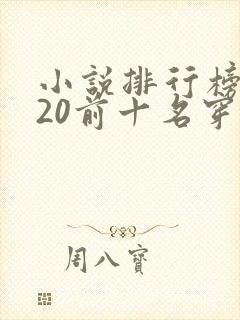 小說排行榜
20前十名穿
周八寶